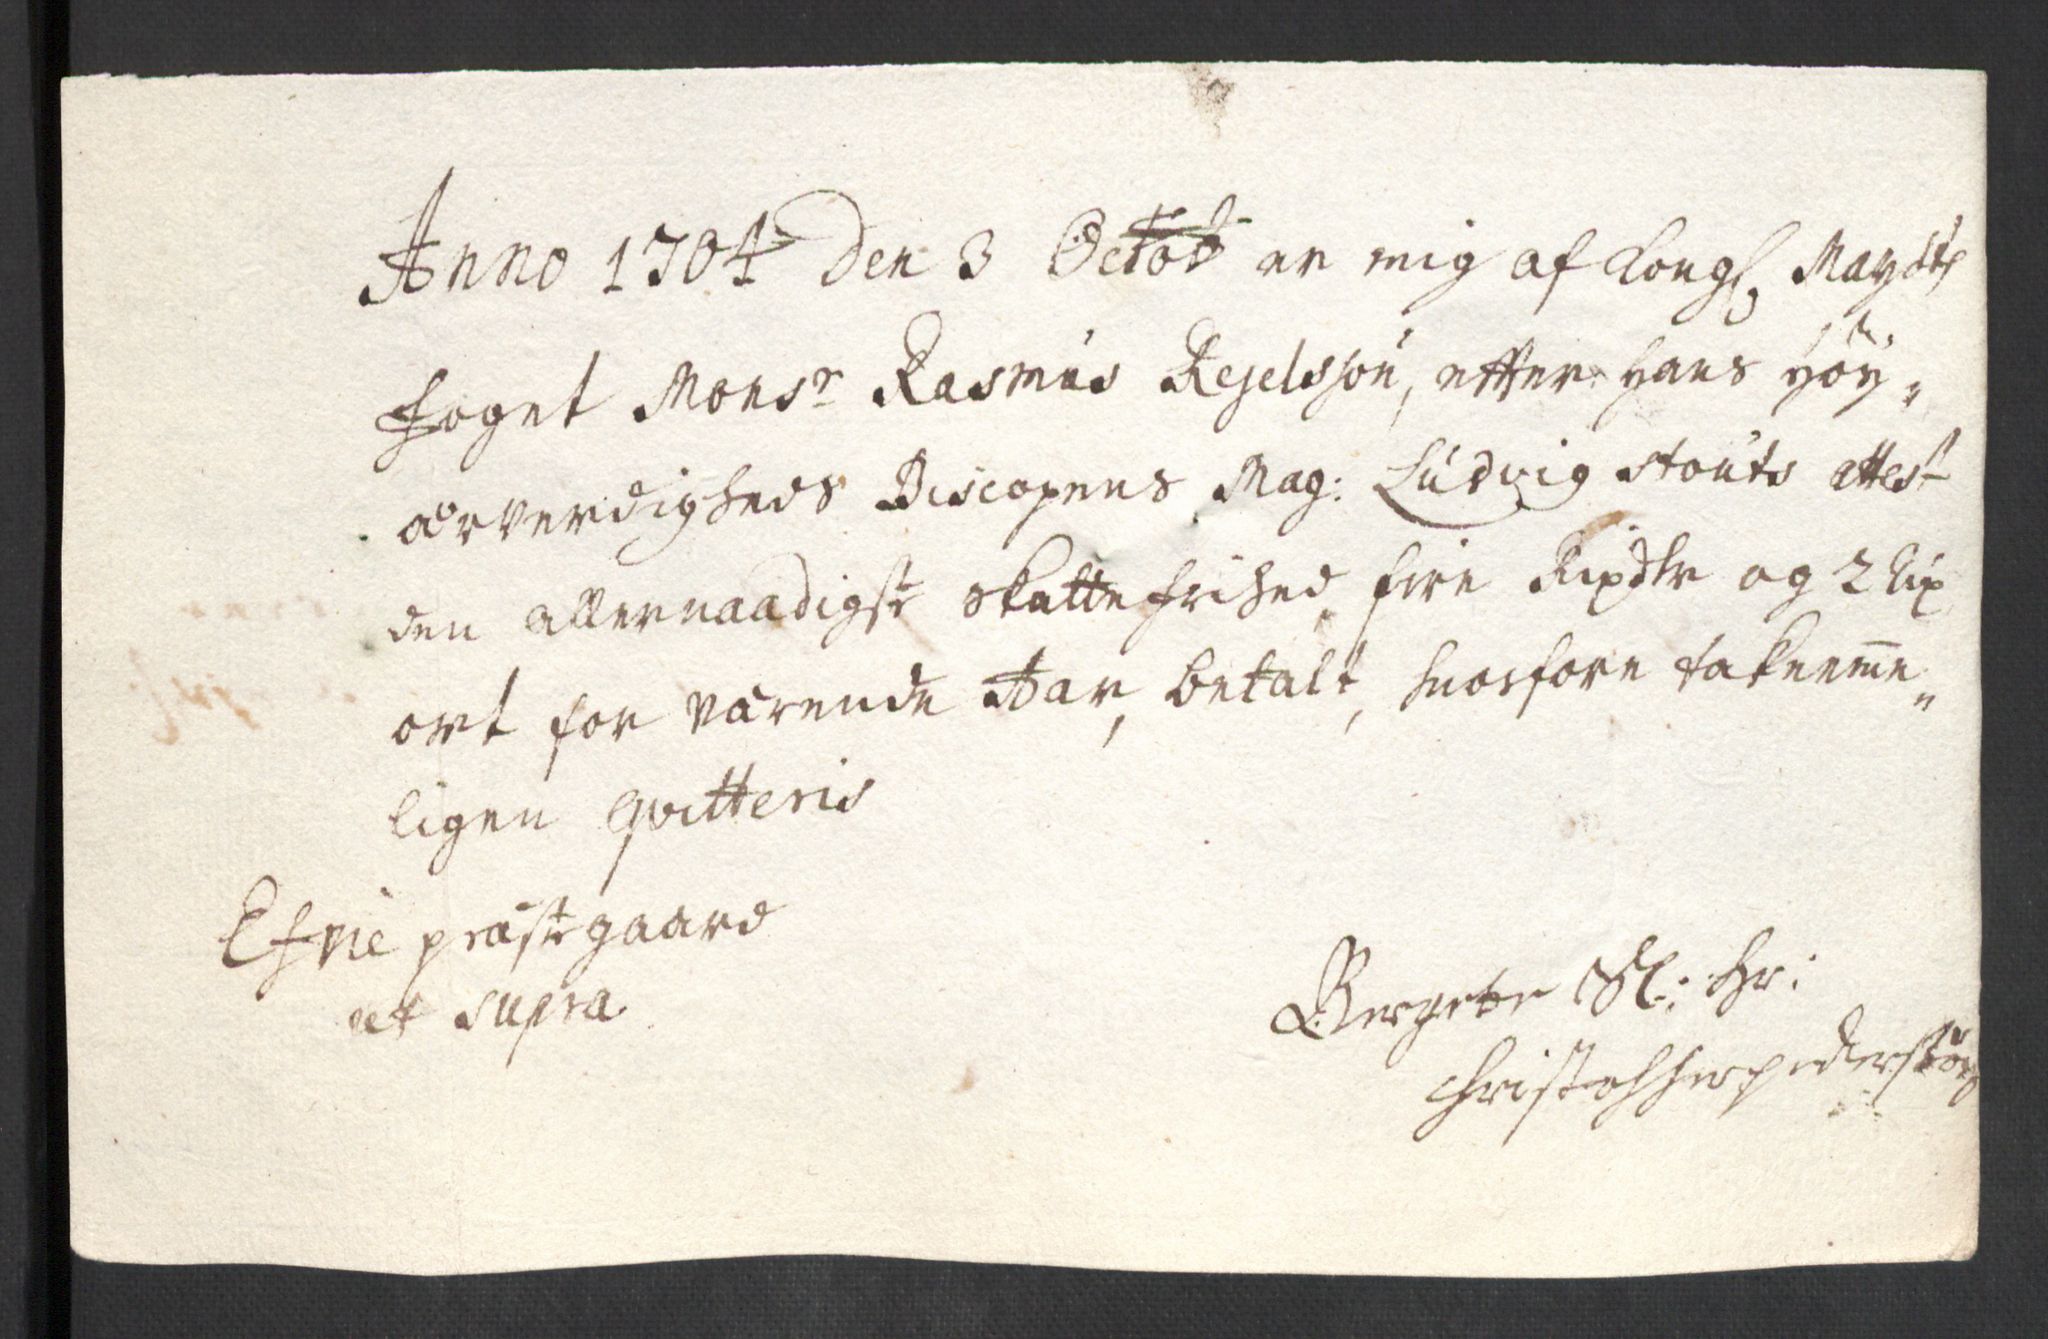 Anno 1704 den 3 Octob er mig af Kongl Maydtz
foget Monsr Rasmus Kejelsson, etter hans höy„
ærverdigheds Biscopens Mag: Ludvig Stouts attest
den allernaadigste skattefrihed fire Rixdlr og 2 rix
ort for værende Aar, betalt, huorfore takneme„
ligen qvitteris
Efvie præstegaard
ut supra
Bergete Sl: Hr:
Christophher pederssöns